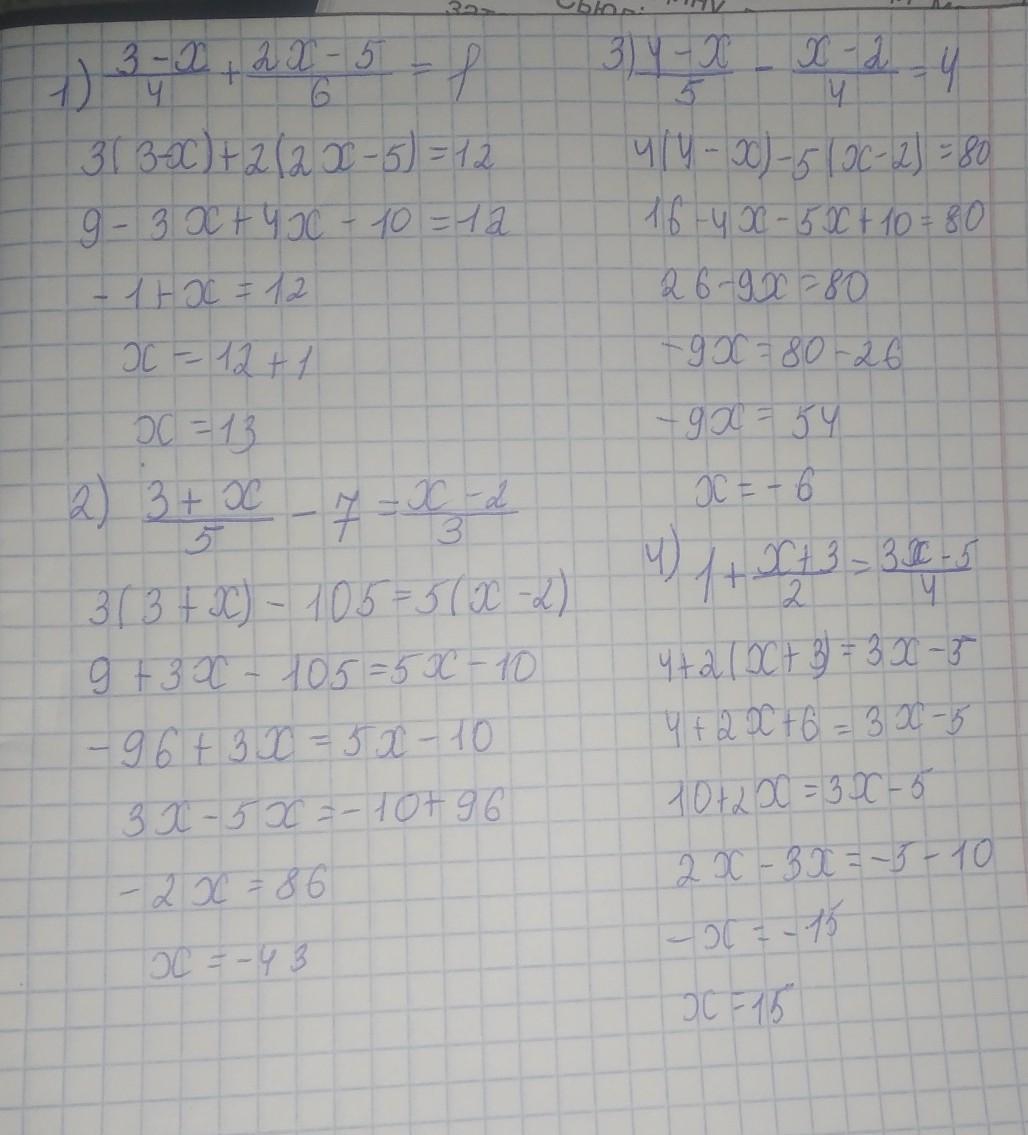 1) (3-x)/4 + (2x-5)/6 = 1
3(3-x)+2(2x-5)=12
9-3x+4x-10=12
-1+x=12
x=12+1
x=13
2) (3+x)/5 - 7 = (x-2)/3
3(3+x)-105=5(x-2)
9+3x-105=5x-10
-96+3x=5x-10
3x-5x=-10+96
-2x=86
x=-43
3) (4-x)/5 - (x-2)/4 = 4
4(4-x)-5(x-2)=80
16-4x-5x+10=80
26-9x=80
-9x=80-26
-9x=54
x=-6
4) 1+(x+3)/2=(3x-5)/4
4+2(x+3)=3x-5
4+2x+6=3x-5
10+2x=3x-5
2x-3x=-5-10
-x=-15
x=15